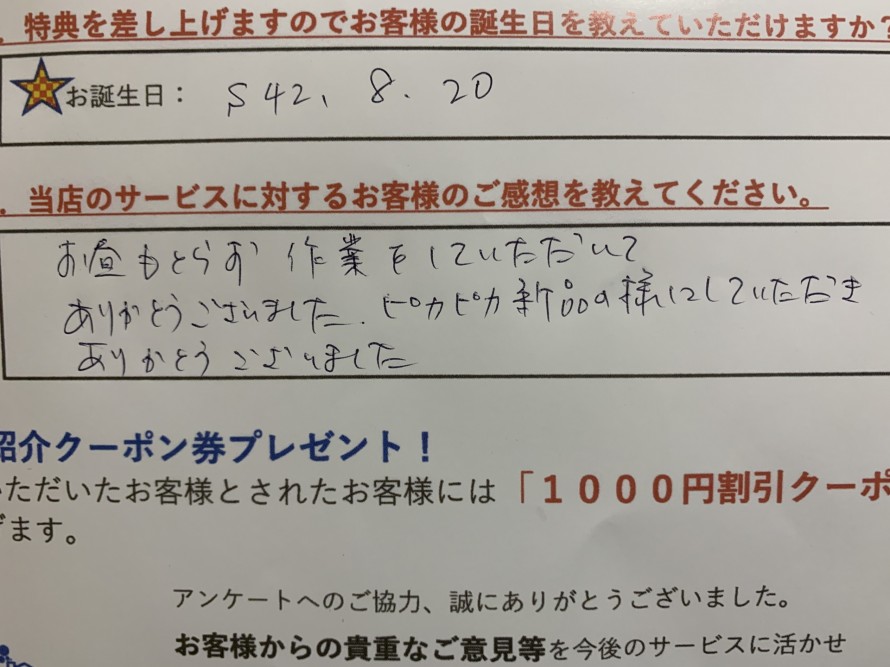 . 特典を差し上げますのでお客様の誕生日を教えていただけますか?
お誕生日： S42、8.20
. 当店のサービスに対するお客様のご感想を教えてください。
お昼もとらお作業をしていただいて
ありがとうございました、ピカピカ新品の様にしていただき
ありがとうございました
紹介クーポン券プレゼント！
いただいたお客様とされたお客様には「１０００円割引クーポ
げます。
アンケートへのご協力、誠にありがとうございました。
お客様からの貴重なご意見等を今後のサービスに活かせ